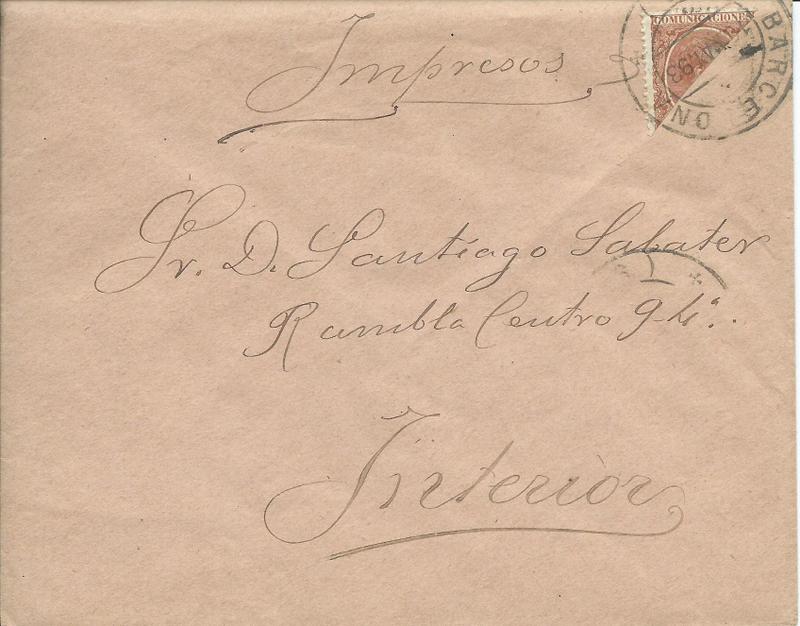 Impresos
COMUNICACIONES
BARCELONA
93
Sr. D. Santiago Sabater
Rambla Centro 9-4º.
Interior